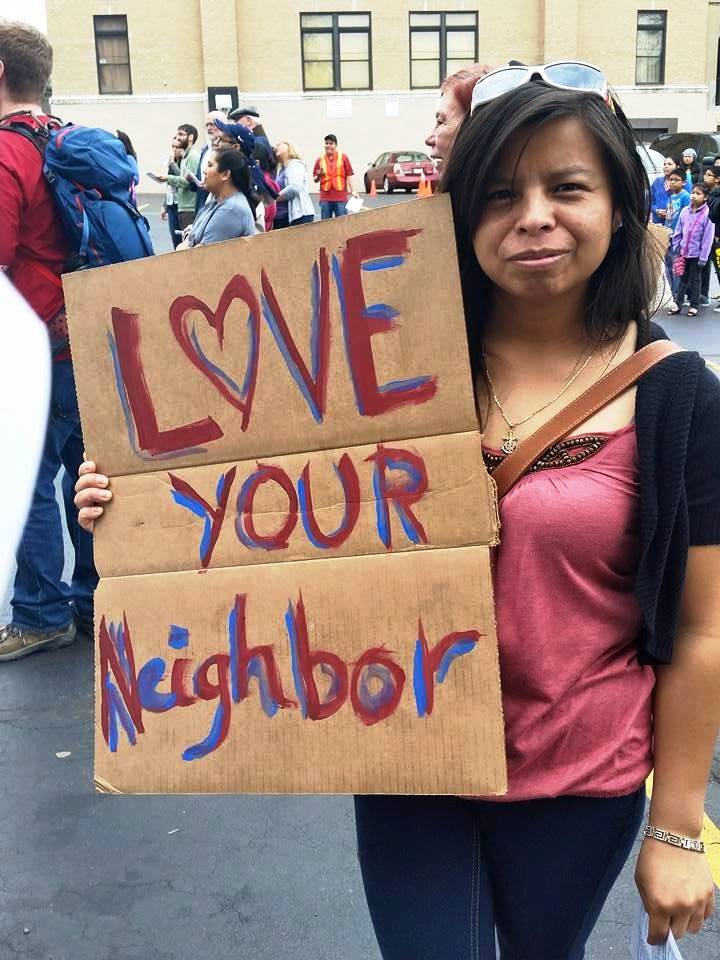 LOVE
YOUR
Neighbor